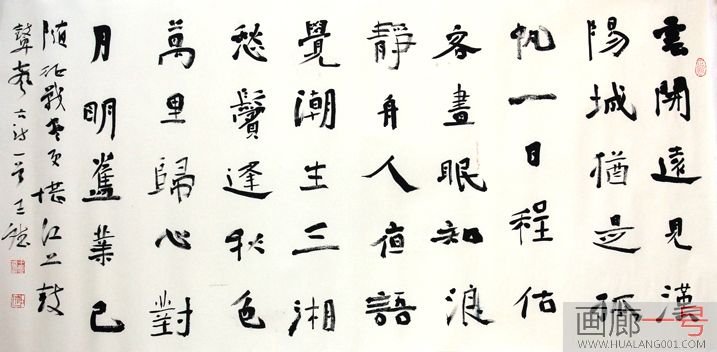 雲開遠見漢
陽城猶是孤
帆一日程估
客晝眠知浪
靜舟人夜語
覺潮生三湘
愁鬢逢秋色
萬里歸心對
月明舊業已
随征戰尽更堪江上鼓
鼙聲 古詩一首 王
画廊一号
WWW.HUALANG001.COM